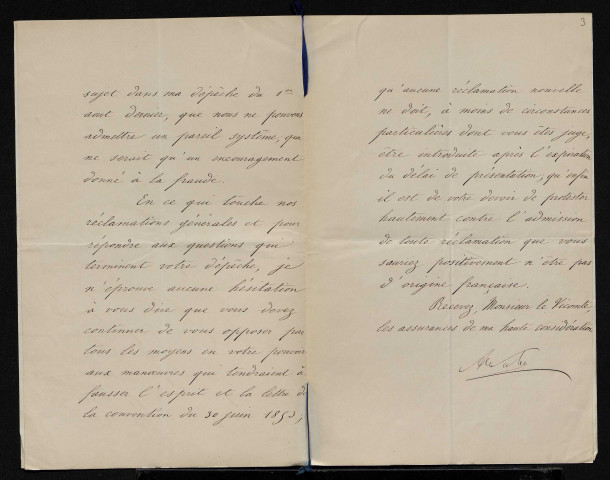 sujet dans ma dépêche du 1er
aout dernier, que nous ne pouvons
admettre un pareil système, qui
ne serait qu'un encouragement
donné à la fraude.
En ce qui touche nos
réclamations générales et pour
répondre aux questions qui
terminent votre dépêche, je
n'éprouve aucune hésitation
à vous dire que vous devez
continuer de vous opposer par
tous les moyens en votre pouvoir
aux manœuvres qui tendraient à
fausser l'esprit et la lettre de
la convention du 30 juin 1853,
3
qu'aucune réclamation nouvelle
ne doit, à moins de circonstances
particulières dont vous êtes juge,
être introduite après l'expiration
du délai de présentation, qu'enfin
il est de votre devoir de protester
hautement contre l'admission
de toute réclamation que vous
sauriez positivement n'être pas
d'origine française.
Recevez, Monsieur le Vicomte,
les assurances de ma haute considération